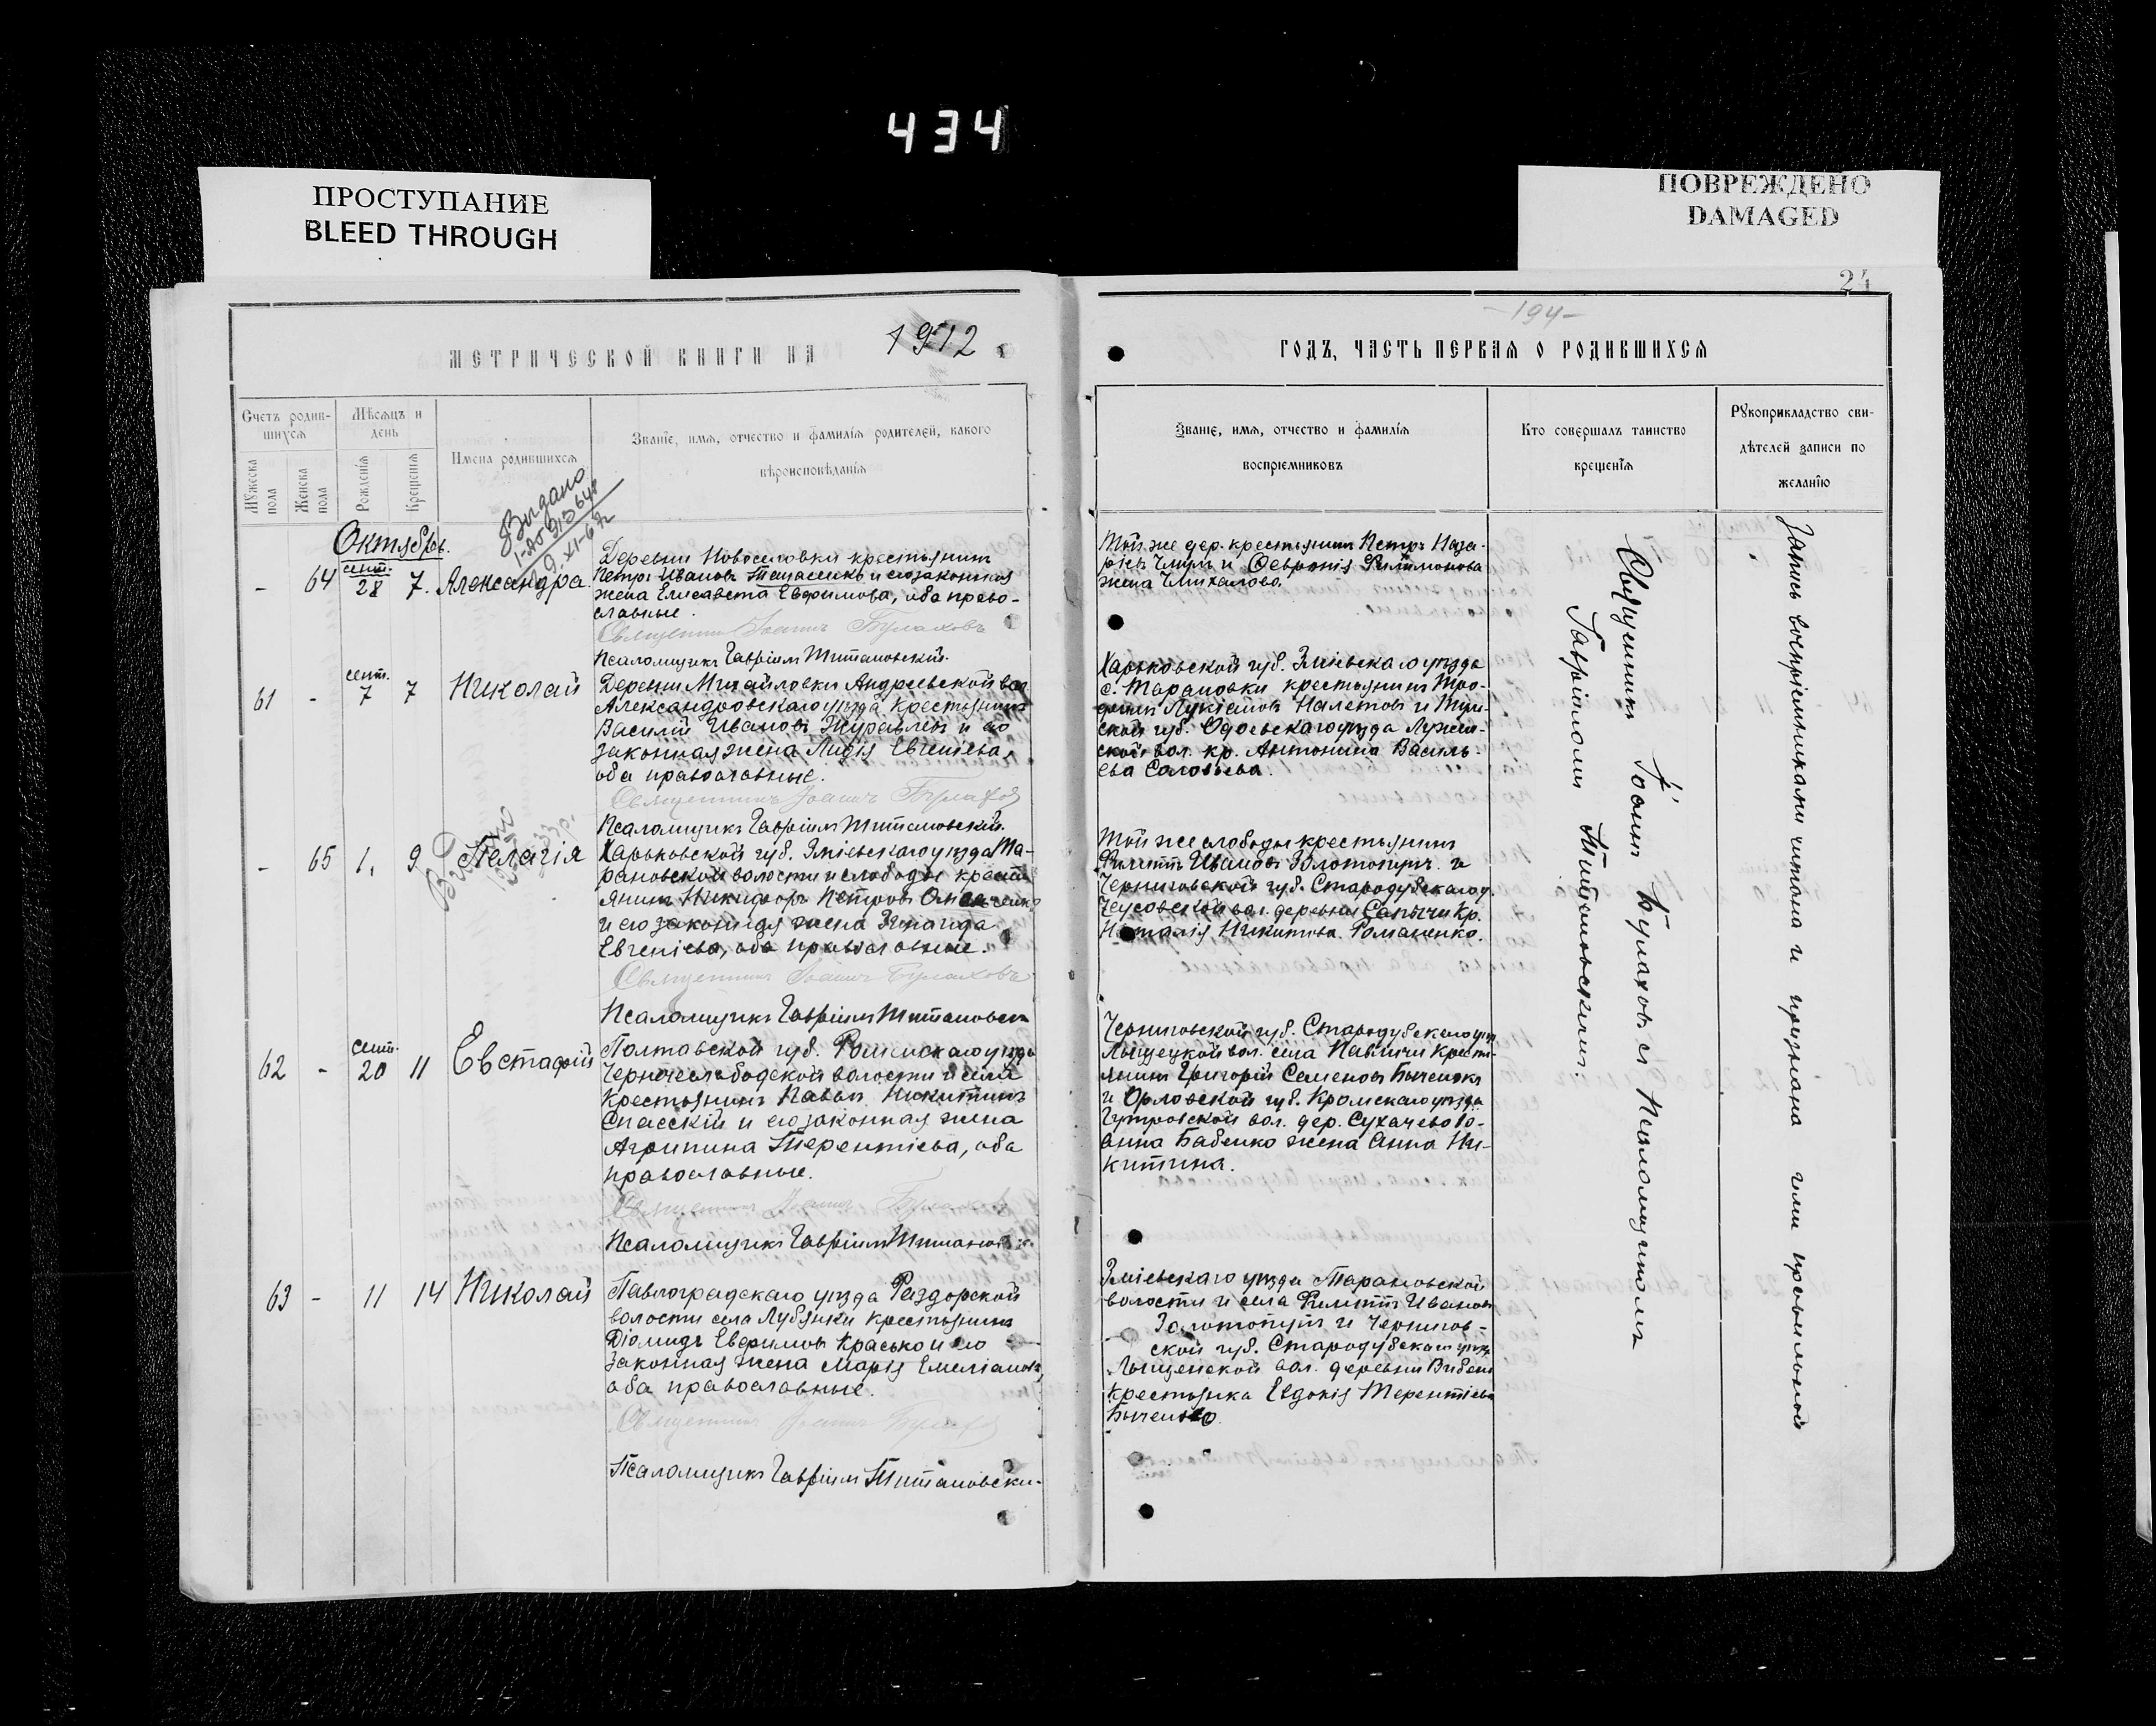 434
ПРОСТУПАНИЕ
BLEED THROUGH
ПОВРЕЖДЕНО
DAMAGED
24
-194-
МЕТРИЧЕСКОЙ КНИГИ НА 1912
ГОДЪ, ЧАСТЬ ПЕРВАЯ О РОДИВШИХСЯ
Счетъ родив-
шихся
Мужеска пола
Женска пола
Мѣсяцъ и
день
Рожденія
Крещенія
Имена родившихся
Званіе, имя, отчество и фамилія родителей, какого
вѣроисповѣданія
Званіе, имя, отчество и фамилія
воспріемниковъ
Кто совершалъ таинство
крещенія
Рукоприкладство сви-
дѣтелей записи по
желанію
Октябрь.
Выдано
9.XI-67г
- 64 сент. 28 7. Александра
Деревни Новоселовки крестьянинъ
Петръ Ивановъ и его законная
жена Елисавета Евфимова, оба право-
славные.
Священникъ Іоаннъ Булаховъ
Псаломщикъ Гавріилъ Титановскій.
Той же дер. крестьянинъ Петръ Наза-
ріевъ и Февронія Филимонова
жена
61 - сент. 7 7 Николай
Деревни Михайловки Андреевской вол
Александровскаго уѣзда крестьянинъ
Василій Ивановъ Журавлевъ и его
законная жена Лидія Евгеніева,
оба православные.
Священникъ Іоаннъ Булаховъ
Псаломщикъ Гавріилъ Титановскій.
Харьковской губ. Зміевскаго уѣзда
с. Тарановки крестьянинъ Тро-
фимъ Лукіановъ Налетовъ и Туль-
ской губ. Одоевскаго уѣзда
ской вол. кр. Антонина Василь-
ева Соловьева.
- 65 1. 9 Пелагія
Харьковской губ. Зміевскаго уѣзда Та-
рановской волости и слободы крестъ-
янинъ Никифоръ Петровъ
и его законная жена Зинаида
Евгеніева, оба православные.
Священникъ Іоаннъ Булаховъ
Псаломщикъ Гавріилъ Титановск
Той же слободы крестьянинъ
Филиппъ Ивановъ Золотопупъ и
Черниговской губ. Стародубскаго у.
вол. деревни Сапычи кр.
Наталія Никитина Романенко.
62 - сент. 20 11 Евстафій
Полтавской губ. Роменскаго уѣзда
Чернечеслободской волости и села
крестьянинъ Павелъ Никитинъ
Спасскій и его законная жена
Агрипина Терентіева, оба
православные.
Священникъ Іоаннъ Булаховъ
Псаломщикъ Гавріилъ Титанов
Черниговской губ. Стародубскаго уѣз
вол. села кресть-
янинъ Григорій Семеновъ Быченокъ
и Орловской губ. Кромскаго уѣзда
вол. дер. Сухачево Іо-
анна Бабенко жена Анна Ни-
китина.
63 - 11 14 Николай
Павлоградскаго уѣзда Раздорской
волости села Лубянки крестьянинъ
Діомидъ Евфимовъ Красько и его
законная жена Марія Емеліанова,
оба православные.
Священникъ Іоаннъ Булаховъ
Псаломщикъ Гавріилъ Титановски
Зміевскаго уѣзда Тарановской
волости и села Филиппъ Ивановъ
Золотопупъ и Чернигов-
ской губ. Стародубскаго уѣз
вол. деревни
крестьянка Евдокія Терентіева
Быченко.
Священникъ Іоаннъ Булаховъ съ псаломщикомъ
Гавріиломъ Титановскимъ.
Запись воспріемниками читана и признана ими правильной